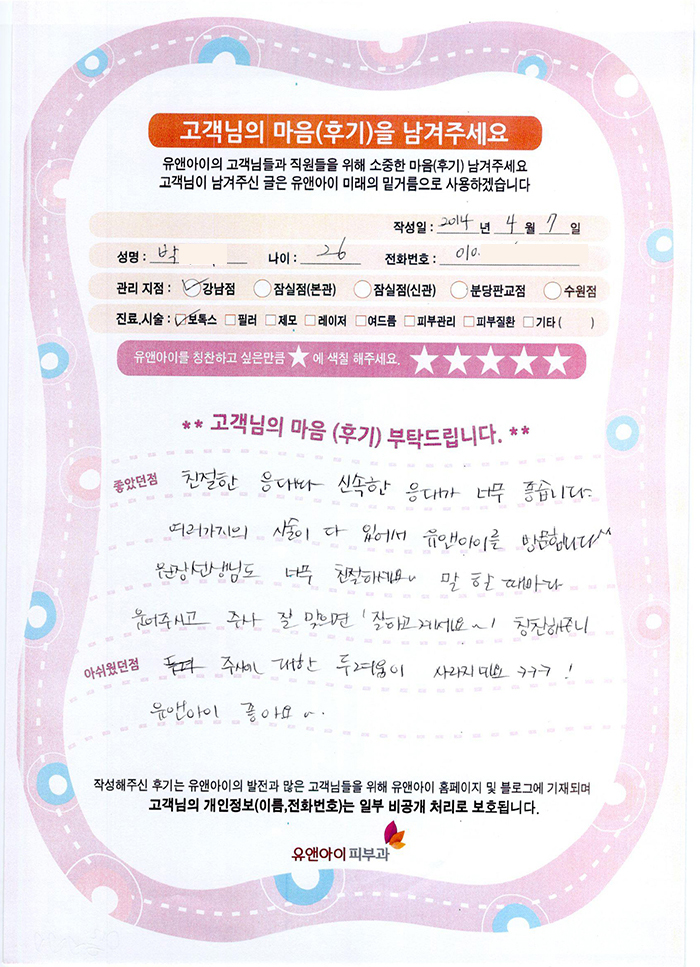 고객님의 마음(후기)을 남겨주세요
유앤아이의 고객님들과 직원들을 위해 소중한 마음(후기) 남겨주세요
고객님이 남겨주신 글은 유앤아이 미래의 밑거름으로 사용하겠습니다
작성일 : 2014 년 4 월 7 일
성명 : 박 나이 : 26 전화번호 : 010.
관리 지점 : 강남점 잠실점(본관) 잠실점(신관) 분당판교점 수원점
진료.시술 : 보톡스 필러 제모 레이저 여드름 피부관리 피부질환 기타 ( )
유앤아이를 칭찬하고 싶은만큼 ★ 에 색칠 해주세요. ★★★★★
** 고객님의 마음 (후기) 부탁드립니다. **
좋았던점 친절한 응대와 신속한 응대가 너무 좋습니다.
여러가지의 시술이 다 있어서 유앤아이를 방문합니다^^
원장선생님도 너무 친절하세요~ 말 할 때마다
웃어주시고 주사 잘 맞으면 '잘하고계세요~!' 칭찬해주니
아쉬웠던점 주사에 대한 두려움이 사라지네요 ㅋㅋㅋ !
유앤아이 좋아요~.
작성해주신 후기는 유앤아이의 발전과 많은 고객님들을 위해 유앤아이 홈페이지 및 블로그에 기재되며
고객님의 개인정보(이름,전화번호)는 일부 비공개 처리로 보호됩니다.
유앤아이피부과